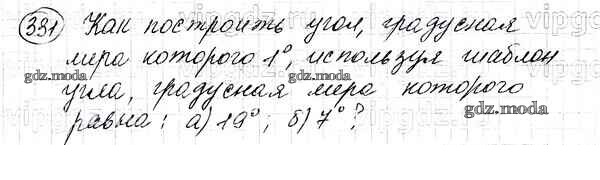 331 Как построить угол, градусная
мера которого 1°, используя шаблон
gdz.moda
угла, градусная мера которого
gdz.moda
gdz.moda
равна: а) 19°; б) 7°?
gdz.moda